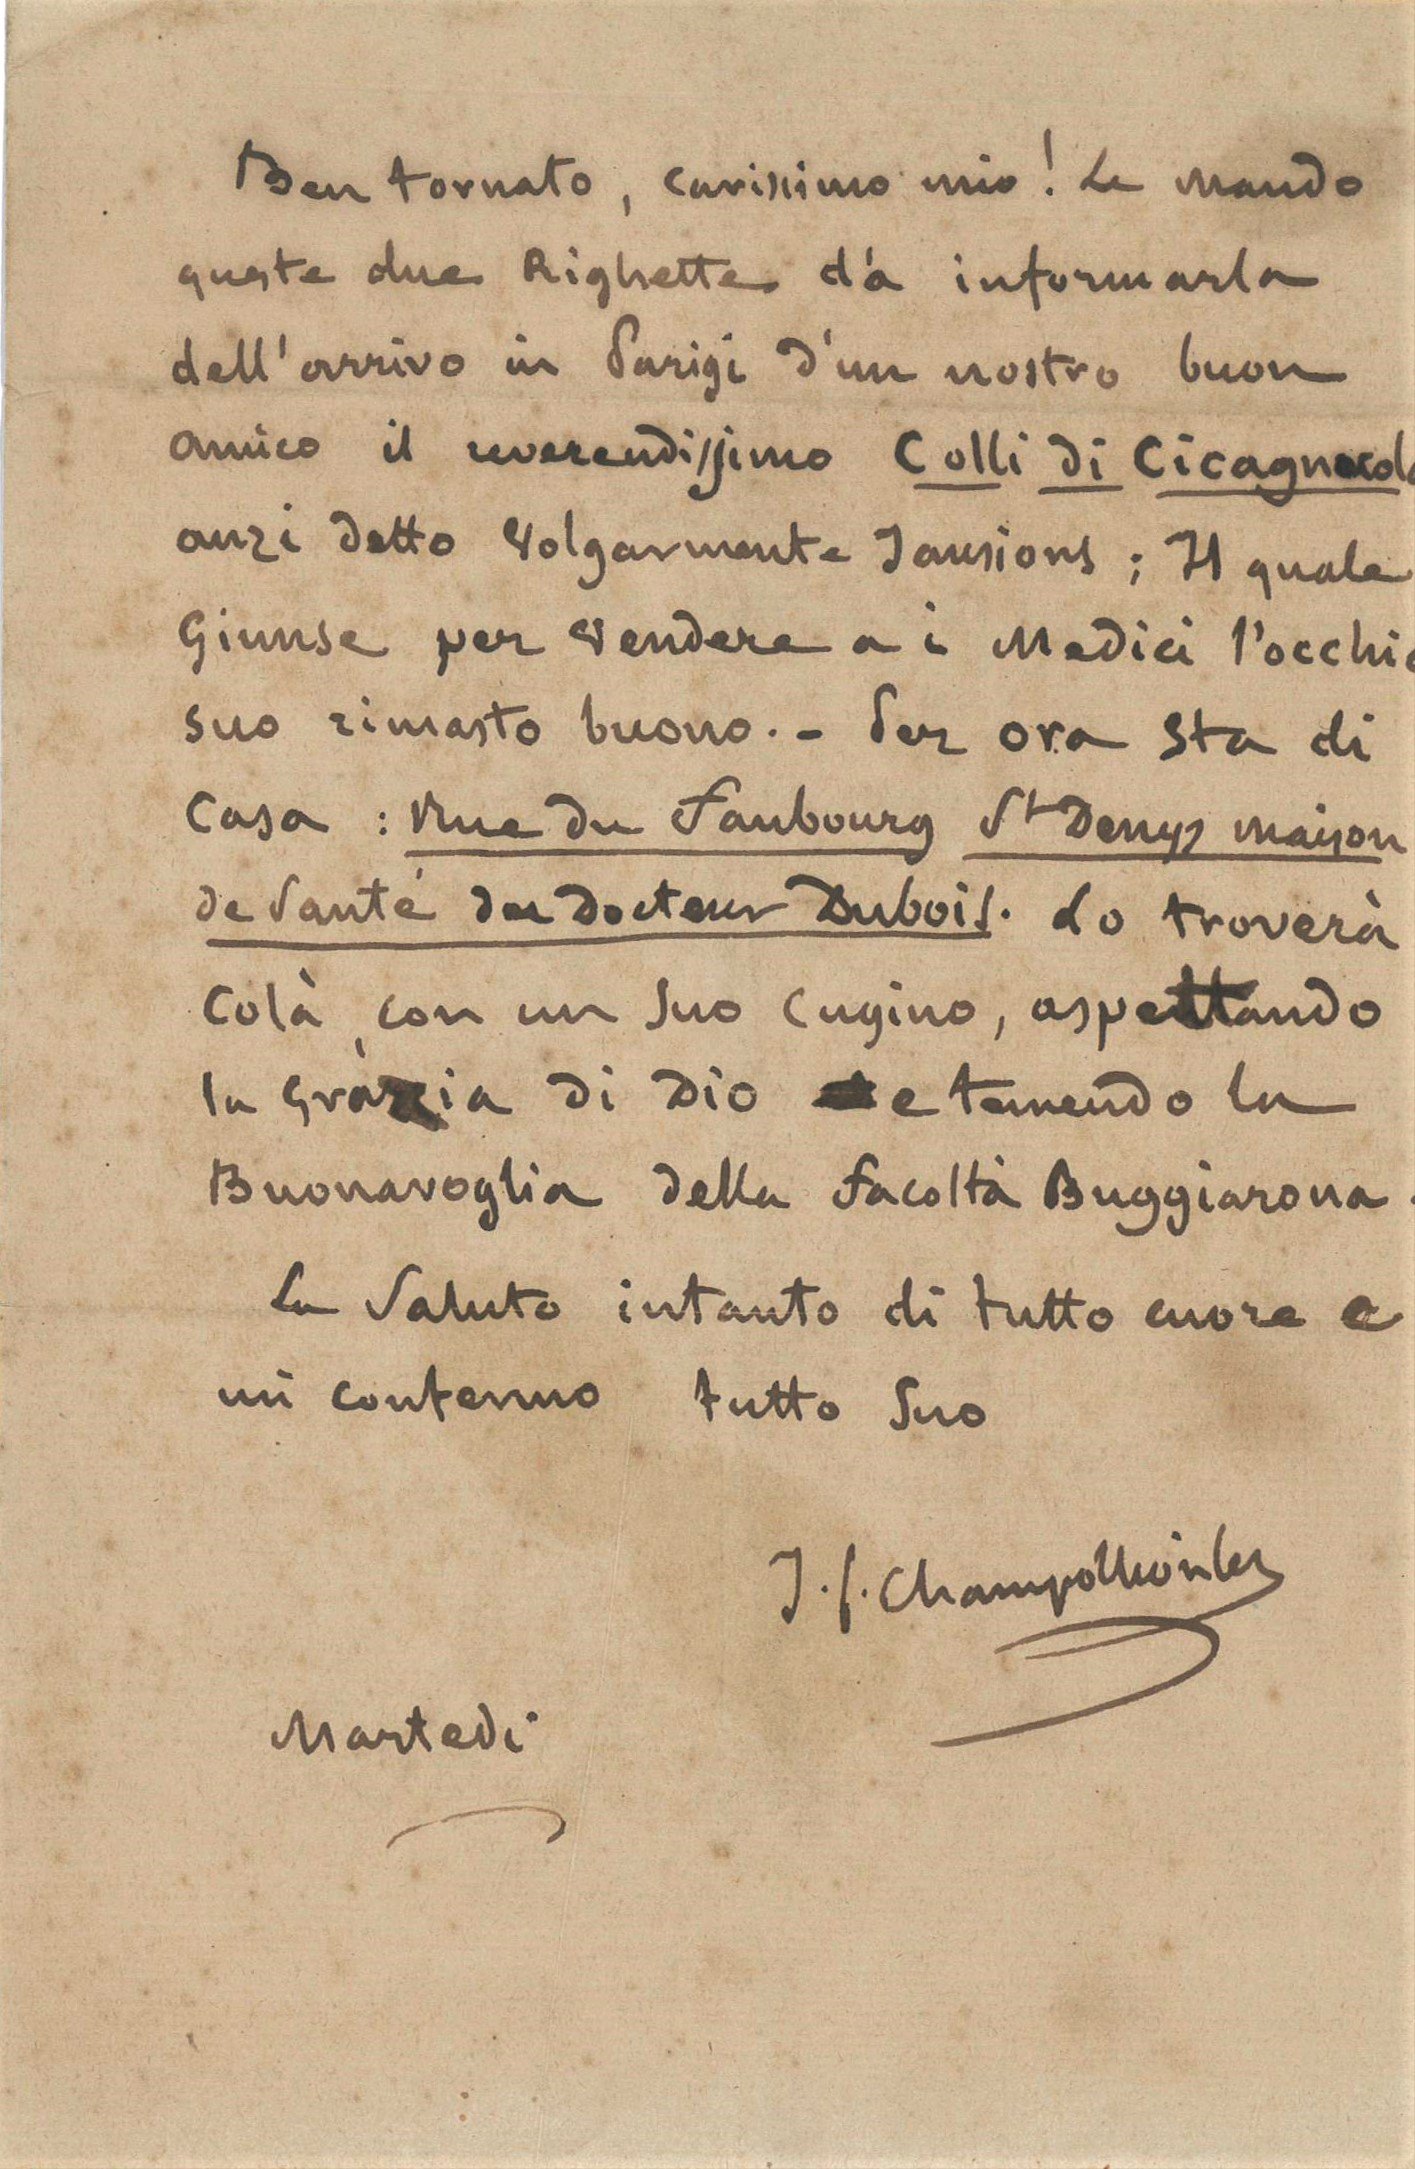 Ben tornato, carissimo mio! Le mando
queste due Righette dà informarla
dell'arrivo in Parigi d'un nostro buon
amico il reverendissimo Colli di
anzi detto Volgarmente Jausions ; Il quale
Giunse per Vendere a i Medici l'occhio
suo rimasto buono. - Per ora sta di
Casa : Rue du Faubourg St Denys maison
de Santé du Docteur Dubois. Lo troverà
Colà, con un suo Cugino, aspettando
la Grazia di Dio e temendo la
Buonavoglia della facoltà Buggiarona.
La Saluto intanto di tutto cuore e
mi confermo tutto Suo
J. f. Champollion le j
Martedi